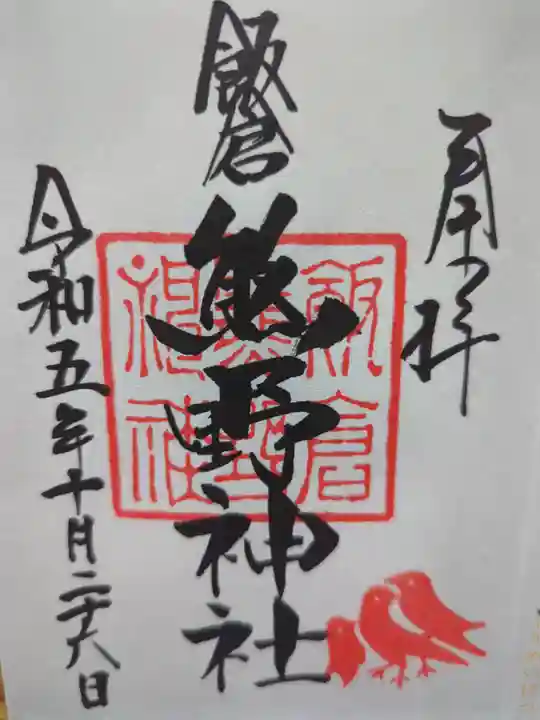 奉拝
飯倉
熊野神社
飯倉熊野神社
令和五年十月二十八日